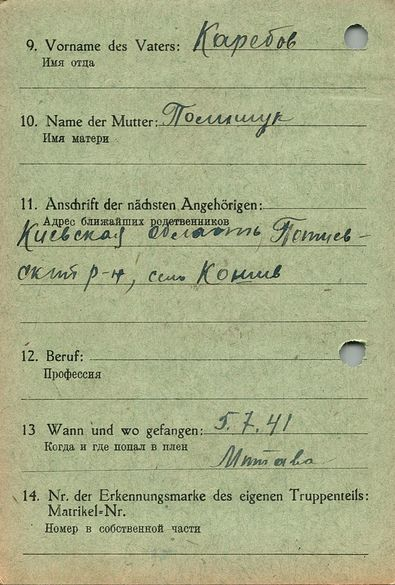 9. Vorname des Vaters: Каребов
Имя отца
10. Name der Mutter: Полищук
Имя матери
11. Anschrift der nächsten Angehörigen:
Адрес ближайших родственников
Киевская область,
р-н, село
12. Beruf:
Профессия
13 Wann und wo gefangen: 5.7.41
Когда и где попал в плен
Митава
14. Nr. der Erkennungsmarke des eigenen Truppenteils:
Matrikel=Nr.
Номер в собственной части